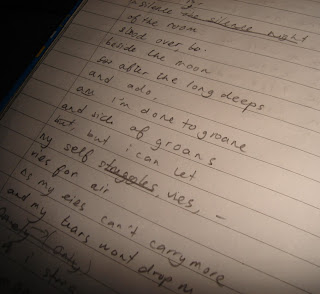 silence the silence night
of the room
shed over, to.
beside the moon
for after the long deeps
and ado,
i'm done to groane
and sick of groans
but, but i can let
my self struggles, vies, –
ries for air
as my eies can't carry more
and my tears wont drop